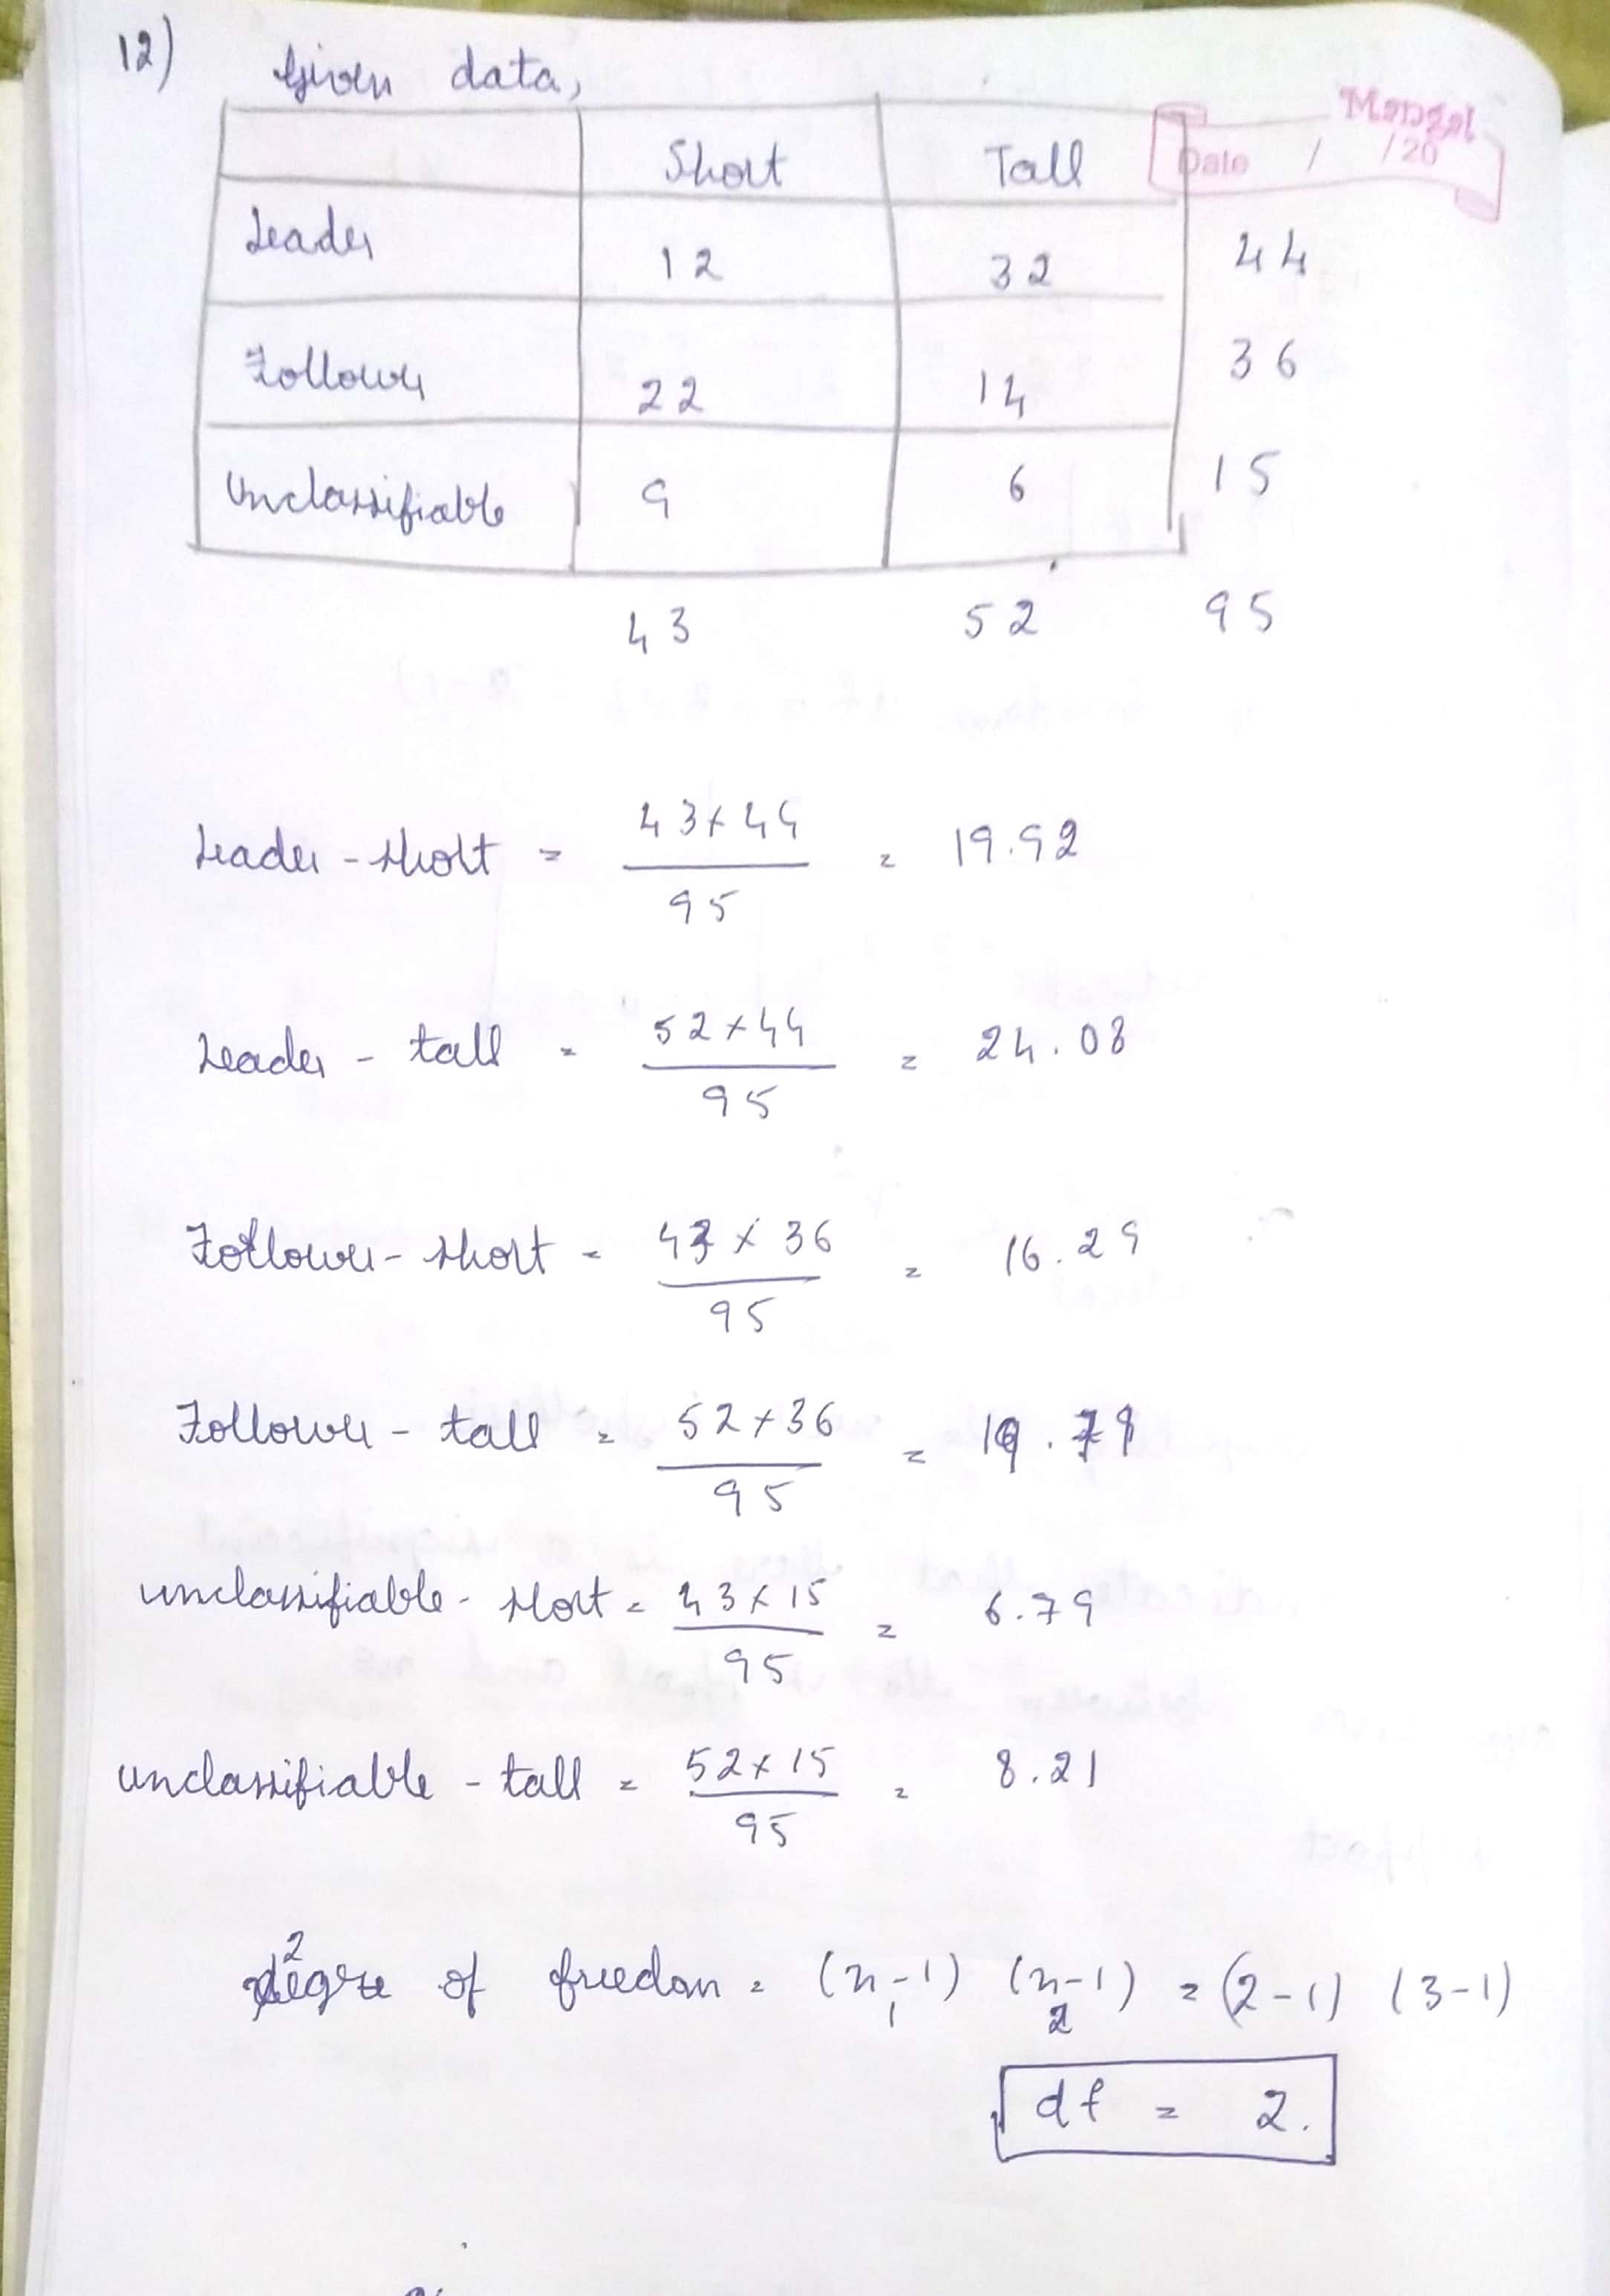 12) Given data,
Mangal
Date / /20
Short Tall
Leader 12 32 44
Follower 22 14 36
Unclassifiable 9 6 15
43 52 95
Leader - short = 43 × 44 / 95 = 19.92
Leader - tall = 52 × 44 / 95 = 24.08
Follower - short = 43 × 36 / 95 = 16.29
Follower - tall = 52 × 36 / 95 = 19.
unclassifiable - short = 43 × 15 / 95 = 6.79
unclassifiable - tall = 52 × 15 / 95 = 8.21
degre of freedom = (n₁-1) (n₂-1) = (2-1) (3-1)
df = 2.